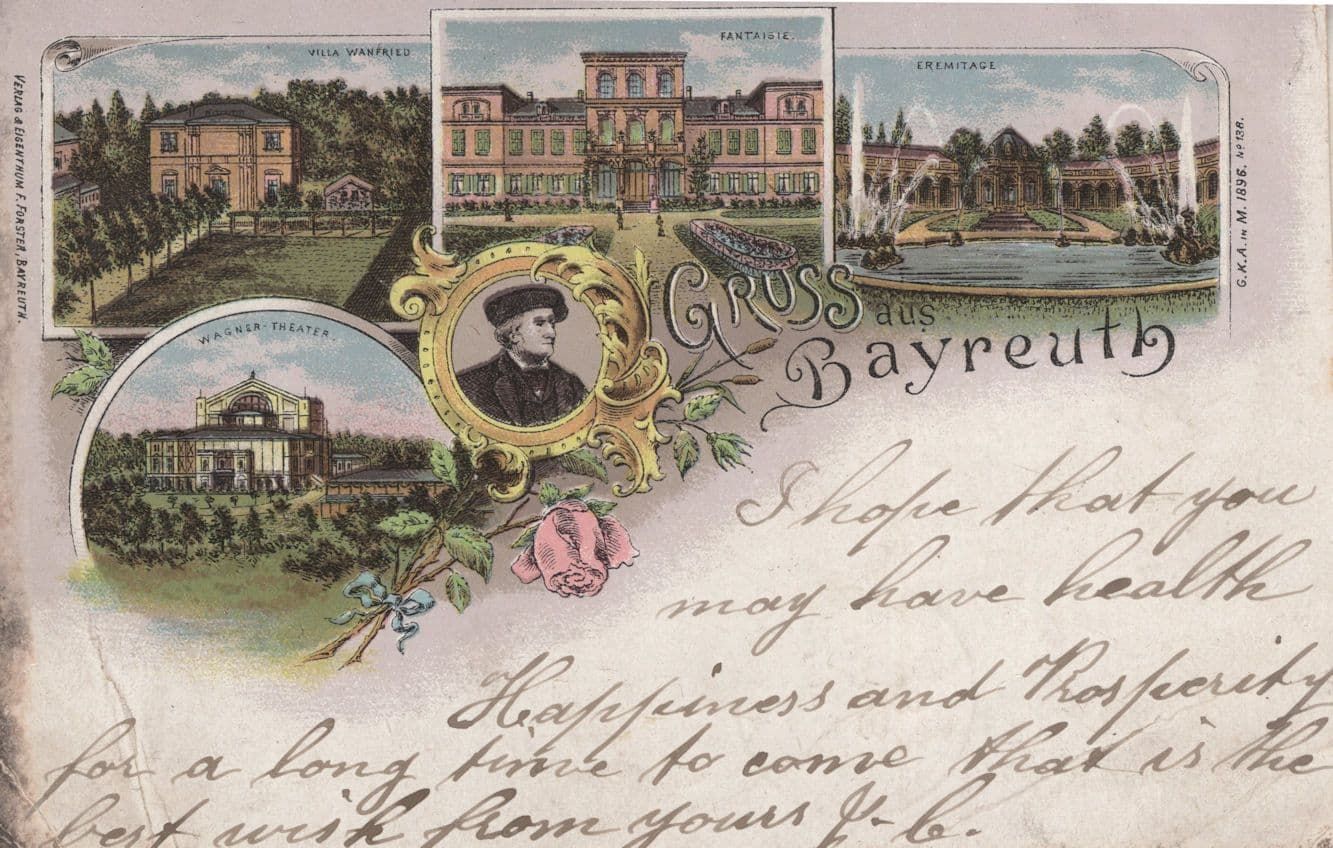 VILLA WANFRIED
FANTAISIE.
EREMITAGE
VERLAG & EIGENTHUM F. FORSTER, BAYREUTH.
G.K.A. IN M. 1896. Nº 138.
WAGNER-THEATER.
GRUSS aus
Bayreuth
I hope that you
may have health
Happiness and Prosperity
for a long time to come that is the
best wish from yours